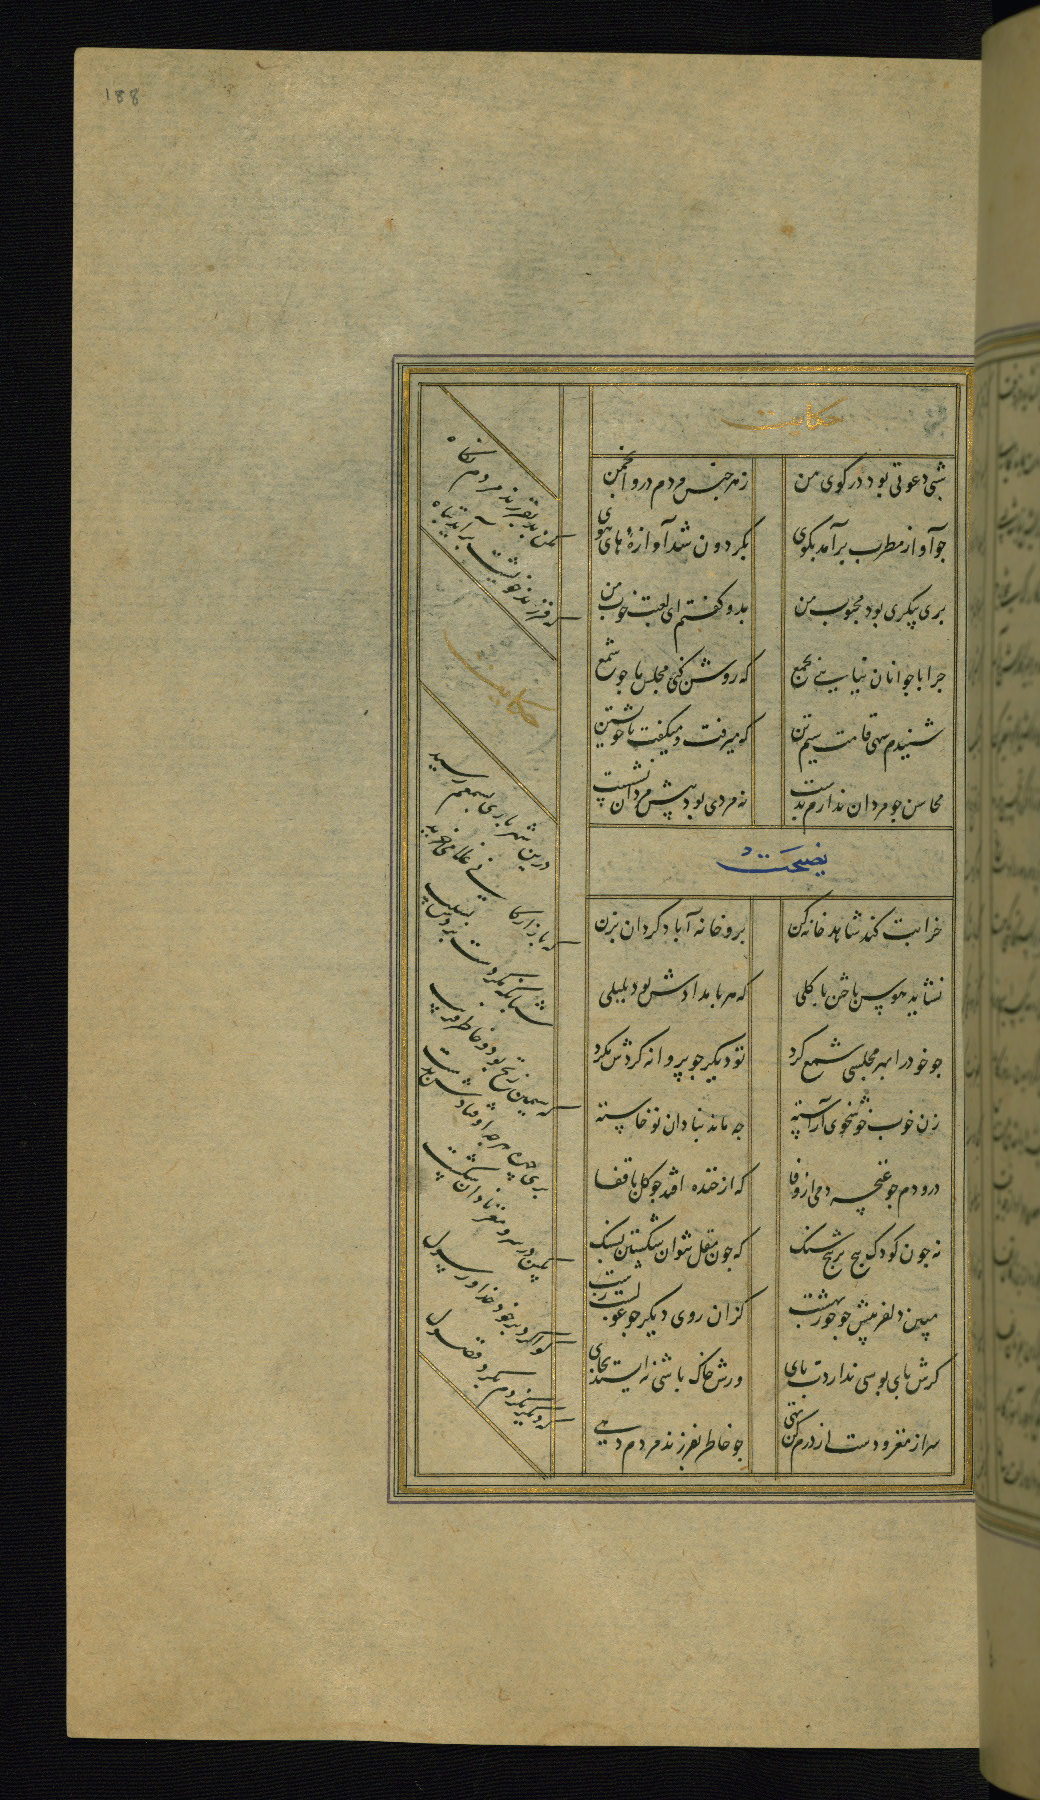 188
حکایت
شبی دعوتی بود در کوی من
ز هر جنس مردم درو انجمن
جو آواز مطرب برآمد بکوی
بکردون شد آوازهٔ های هوی
بری پیکری بود محبوب من
بدو کفتم ای لعبت خوب من
جرا با جوانان نیایی بجمع
که روشن کنی مجلس ما جو شمع
شنیدم سهی قامت سیم تن
که میرفت و میکفت با خویشتن
محاسن جو مردان ندارم بدست
نه مردی بود پیش مردان نشست
نصیحت
خرابت کند شاهد خانه کن
برو خانه آباد کردان بزن
نشاید هوس باختن با کلی
که هر بامدادش بود بلبلی
جو خود را بهر مجلسی شمع کرد
تو دیکر جو پروانه کردش مکرد
زن خوب خوشخوی آراسته
جه ماند بنادان نوخاسته
درو دم جو غنچه دمی از وفا
که از خنده افتد جو کل با قفا
نه جون کودک پیچ بر پیچ شنک
که جون مقل نتوان شکستن بسنک
مبین دلفریبش جو حور بهشت
کزان روی دیکر جو غولست زشت
کرش پای بوسی نداردت پای
ورش خاک باشی نه ایستد بجای
سر از مغز و دست از درم کن تهی
جو خاطر بفرزند مردم دهی
مکن بد بفرزند مردم نکاه
که فرزند خویشت برآید تباه
حکایت
درین شهر باری بسمعم رسید
که بازارکانی غلامی خرید
شبانکه مکر دست بردش بسیب
که سیمین زنخ بود و خاطر فریب
بری چهره هرجه اوفتادش بدست
یکین در سر و مغز نادان شکست
کوا کرد بر خود خدا و رسول
که دیکر نکردم بکرد فضول